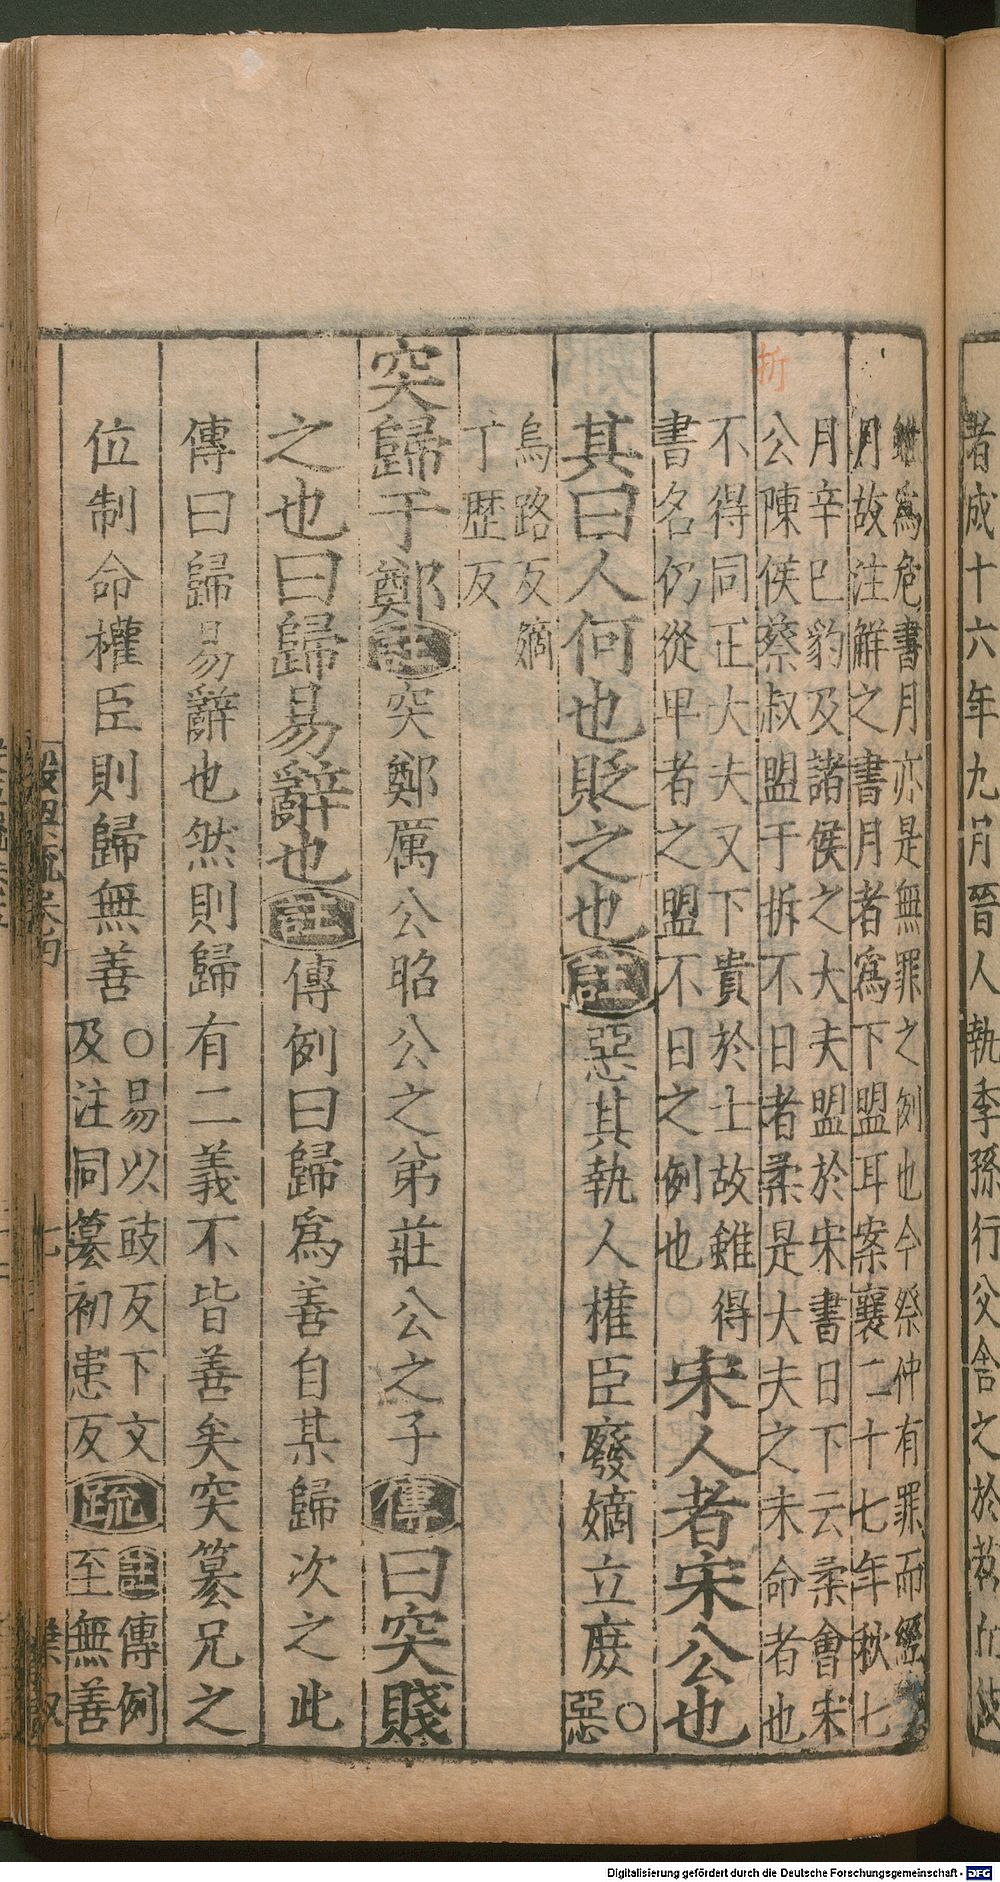 者成十六年九月晉人執季孫行父舍之於
雖爲危書月亦是無罪之例也今祭仲有罪而經
月故注解之書月者爲下盟耳案襄二十七年秋七
月辛巳豹及諸侯之大夫盟於宋書日下云柔會宋
公陳侯蔡叔盟于折不日者柔是大夫之未命者也
折
不得同正大夫又下貴於士故雖得
書名仍從卑者之盟不日之例也
宋人者宋公也
其曰人何也貶之也註惡其執人權臣廢嫡立庶
○
惡
烏路反嫡
丁歷反
突歸于鄭註突鄭厲公昭公之弟莊公之子傳曰突賤
之也曰歸易辭也註傳例曰歸爲善自某歸次之此
傳曰歸易辭也然則歸有二義不皆善矣突簒兄之
位制命權臣則歸無善
○易以豉反下文
及注同簒初患反
疏
註傳例
至無善
七
Digitalisierung gefördert durch die Deutsche Forschungsgemeinschaft - DFG